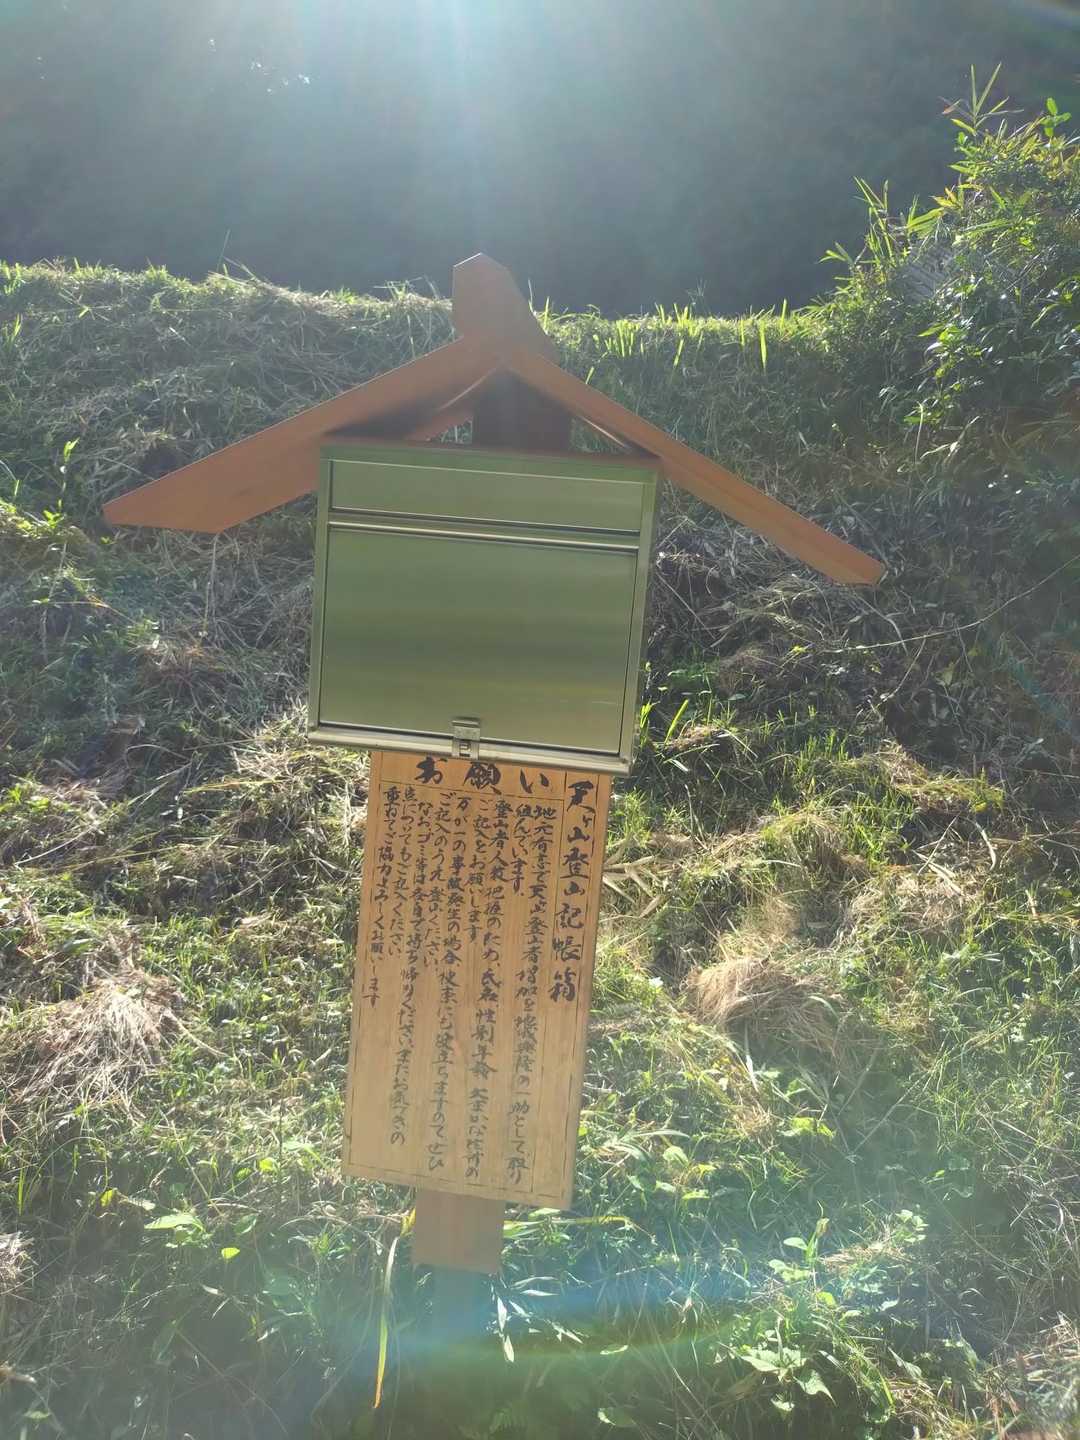 お願い
天ヶ山登山記帳箱
地元有志で天ヶ山登山者増加を地域興隆の一助として取り
組んでいます
登山者人数把握のため、氏名 性別 年齢 大まかな住所の
ご記入をお願いします
万が一の事故発生の場合、捜索にも役立ちますのでぜひ
ご記入のうえ登山ください
なお、ゴミ等は各自で持ち帰りください、またお気づきの
点についてもご記入ください
重ねてご協力よろしくお願いします